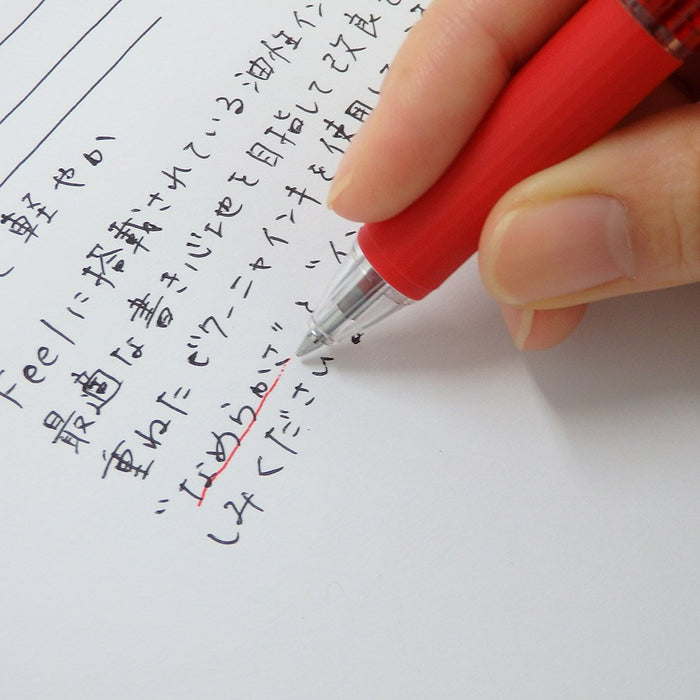 軽やか
Feelに搭載されている油性イン
最適な書き心地を目指して改良
重ねたビクーニャインキを使用し
"なめらかさ"と"イ
しみください